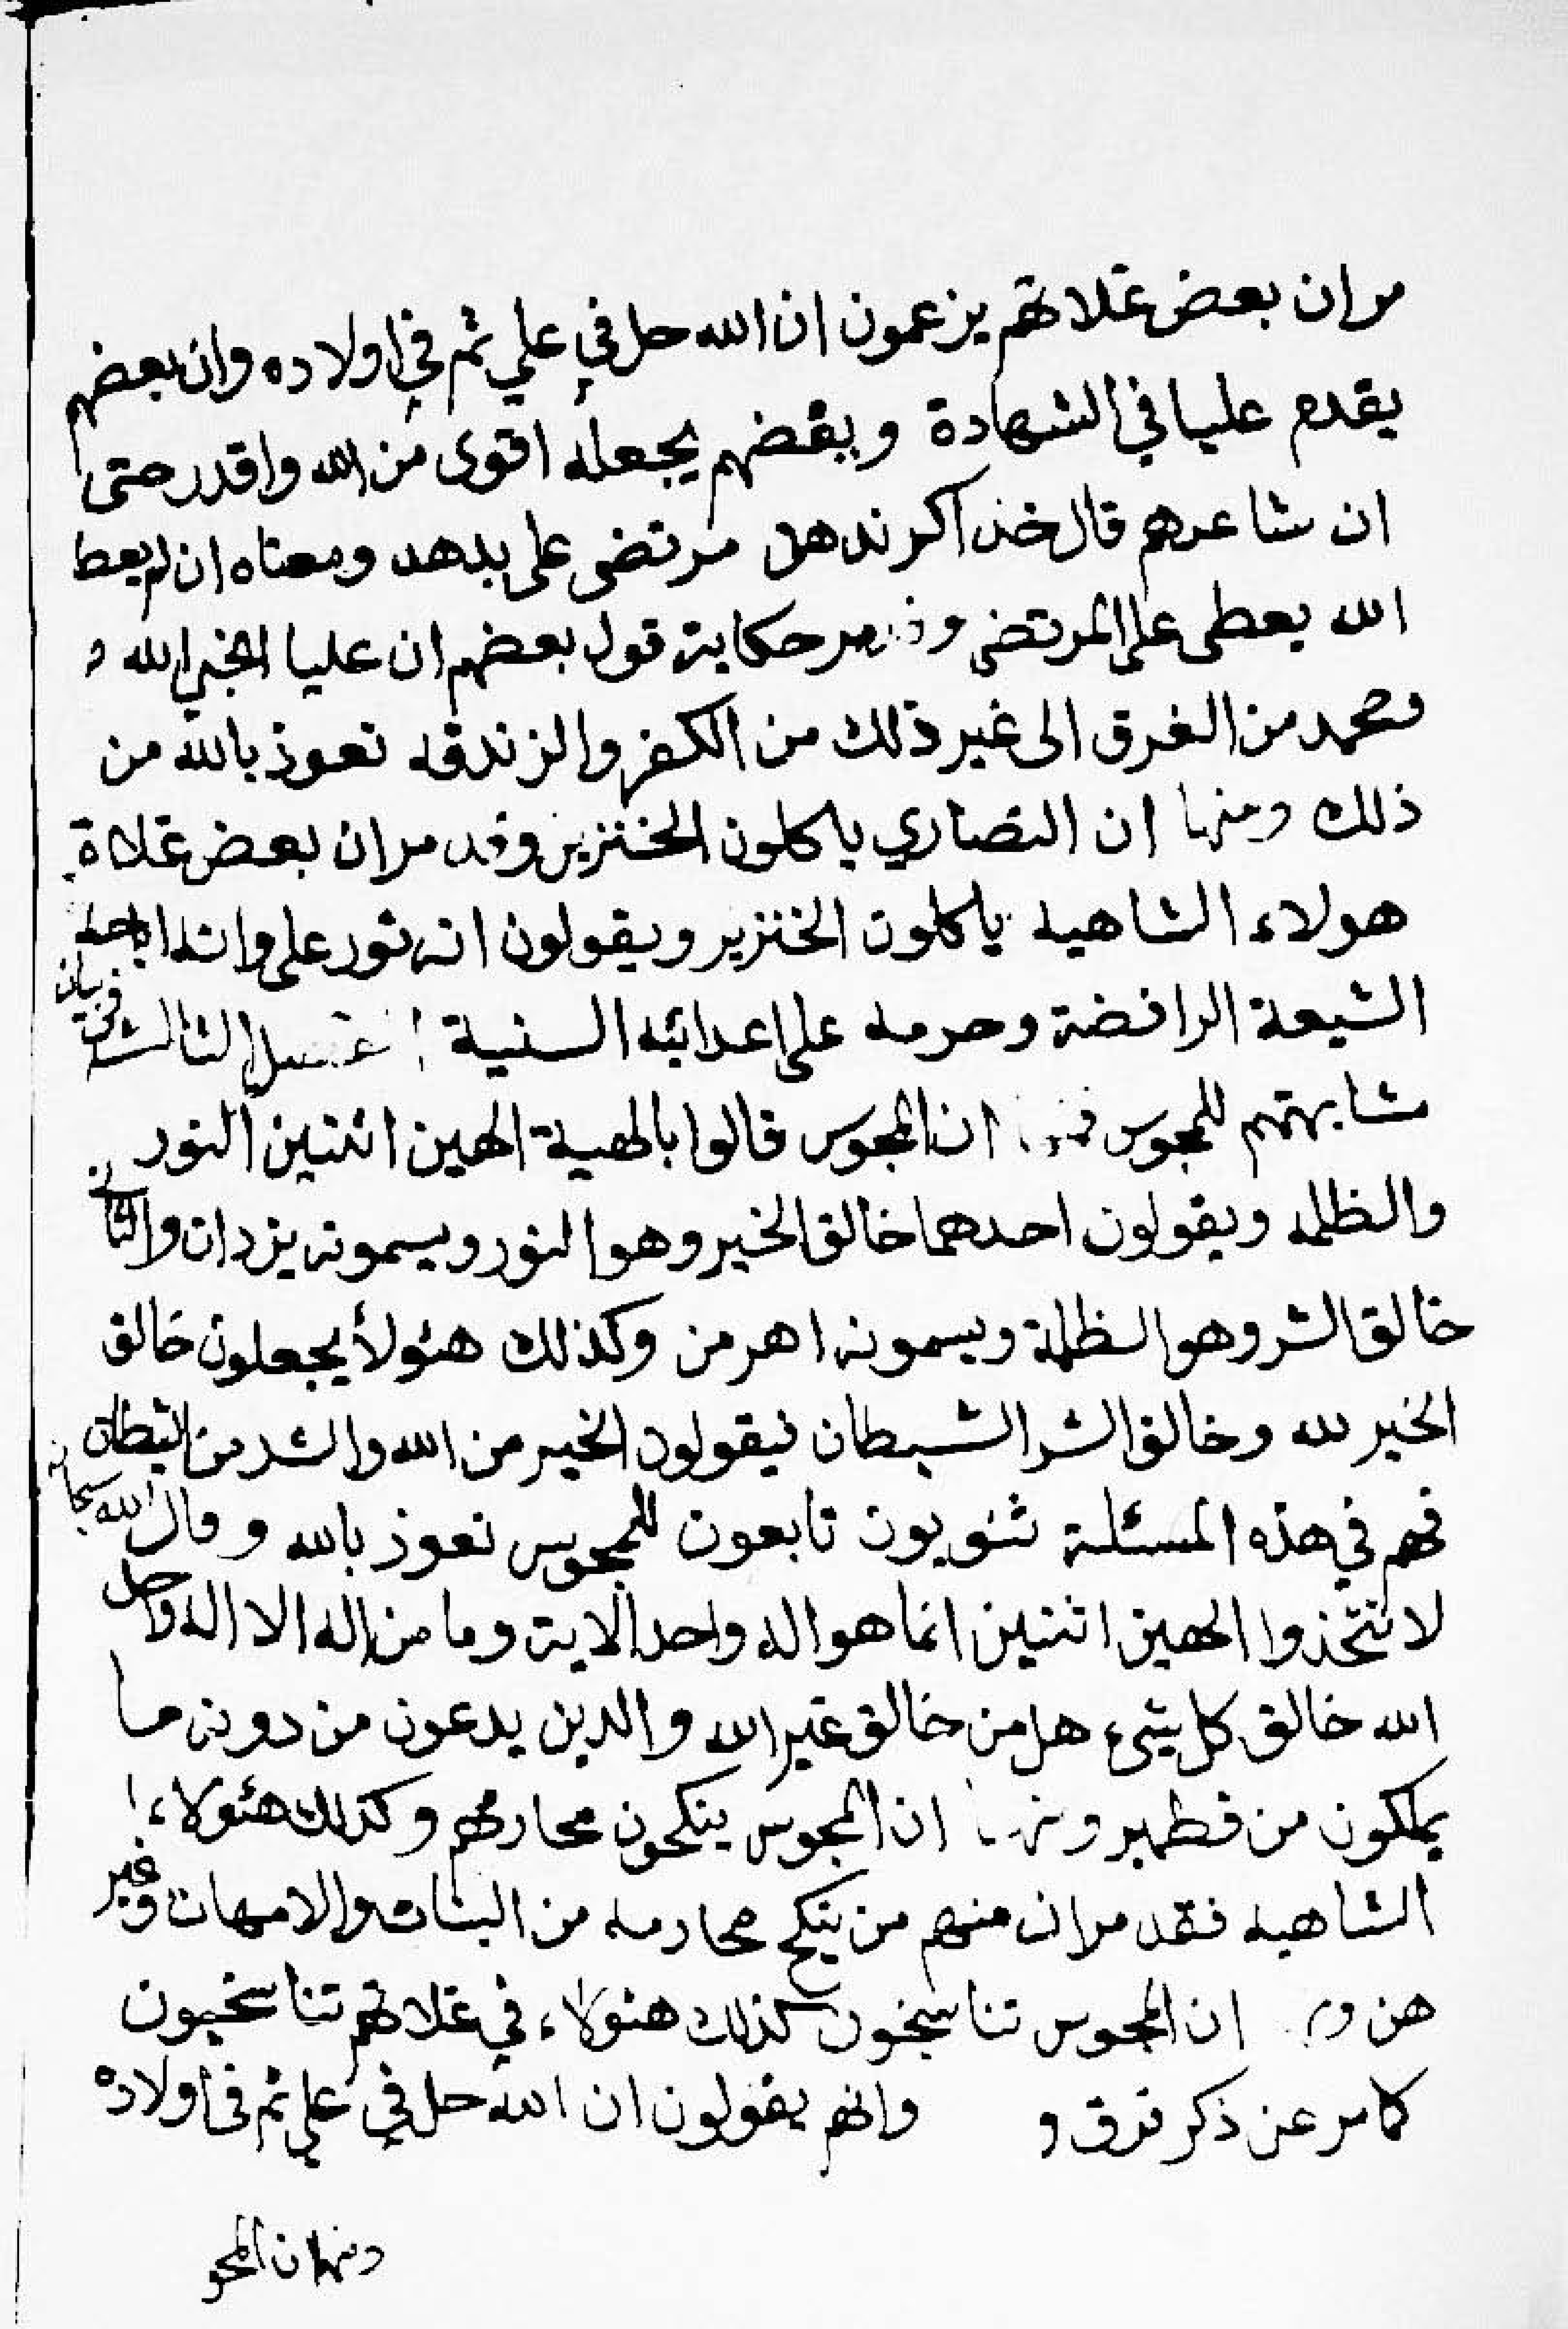 مر ان بعض غلاتهم يزعمون ان الله حل في علي ثم في اولاده وان بعضهم
يقدم عليا في الشهادة وبعضهم يجعله اقوى من الله واقدر حتى
ان شاعرهم قال خدا كر ندهد مرتضى على بدهد ومعناه ان لم يعط
الله يعطى على المرتضى مر حكاية قول بعضهم ان عليا الله و
محمد من الغرق الى غير ذلك من الكفر والزندقه نعوذ بالله من
ذلك ومنها ان النصاري ياكلون الخنزير وقد مر ان بعض غلاة
هولاء الشاهيه ياكلون الخنزير ويقولون انه نور على وانه اباحه
الشيعة الرافضة وحرمه على اعدائه السنية الفصل الثالث في بيان
مشابهتهم للمجوس فمنها ان المجوس قالوا بالهية الهين اثنين النور
والظلمه ويقولون احدهما خالق الخير وهو النور ويسمونه يزدان والثاني
خالق الشر وهو الظلمة ويسمونه اهرمن وكذلك هئولأ يجعلون خالق
الخير لله وخالق الشر الشيطان فيقولون الخير من الله والشر من الشيطان
فهم في هذه المسئلة ثنويون تابعون للمجوس نعوذ بالله وقال الله سبحانه
لا تتخذوا الهين اثنين انما هو اله واحد الاية وما من اله الا اله واحد
الله خالق كل شيء هل من خالق غير الله والدين يدعون من دونه ما
يملكون من قطمير ومنها ان المجوس ينكحون محارمهم وكذلك هئولاء
الشاهيه فقد مر ان منهم من ينكح محارمه من البنات والامهات وغير
هن ان المجوس تناسخيون كذلك هئولاء في غلاتهم تناسخيون
كما مر عن ذكر فرق و وانهم يقولون ان الله حل في علي ثم في اولاده
ومنها ان المجو